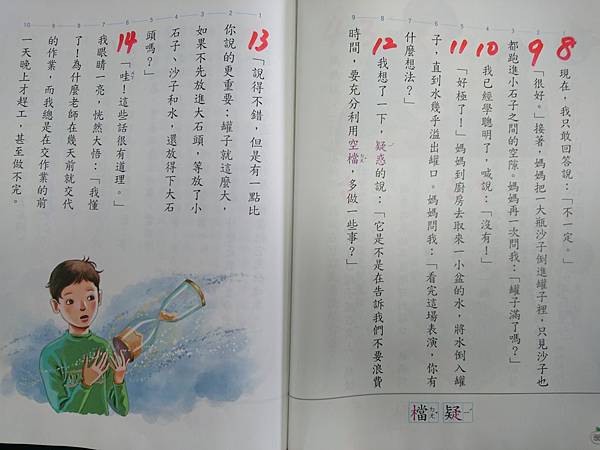 9 8 7 6 5 4 3 2 1
8 現在，我只敢回答說：「不一定。」
9 「很好。」接著，媽媽把一大瓶沙子倒進罐子裡，只見沙子也
都跑進小石子之間的空隙。媽媽再一次問我：「罐子滿了嗎？」
10 我已經學聰明了，喊說：「沒有！」
11 「好極了！」媽媽到廚房去取來一小盆的水，將水倒入罐
子，直到水幾乎溢出罐口。媽媽問我：「看完這場表演，你有
什麼想法？」
12 我想了一下，疑惑的說：「它是不是在告訴我們不要浪費
時間，要充分利用空檔，多做一些事？」
疑
檔
10 9 8 7 6 5 4 3 2 1
13 「說得不錯，但是有一點比
你說的更重要：罐子就這麼大，
如果不先放進大石頭，等放了小
石子、沙子和水，還放得下大石
頭嗎？」
14 「哇！這些話很有道理。」
我眼睛一亮，恍然大悟：「我懂
了！為什麼老師在幾天前就交代
的作業，而我總是在交作業的前
一天晚上才趕工，甚至做不完。